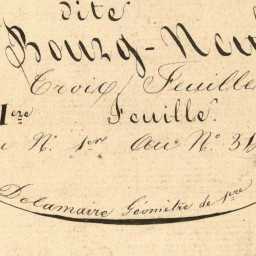 dite
Bourg-Neu
Trois Feuille
1ere Feuille.
u N.° 1er Au N.° 31
Delamaire Géomètre de 1re